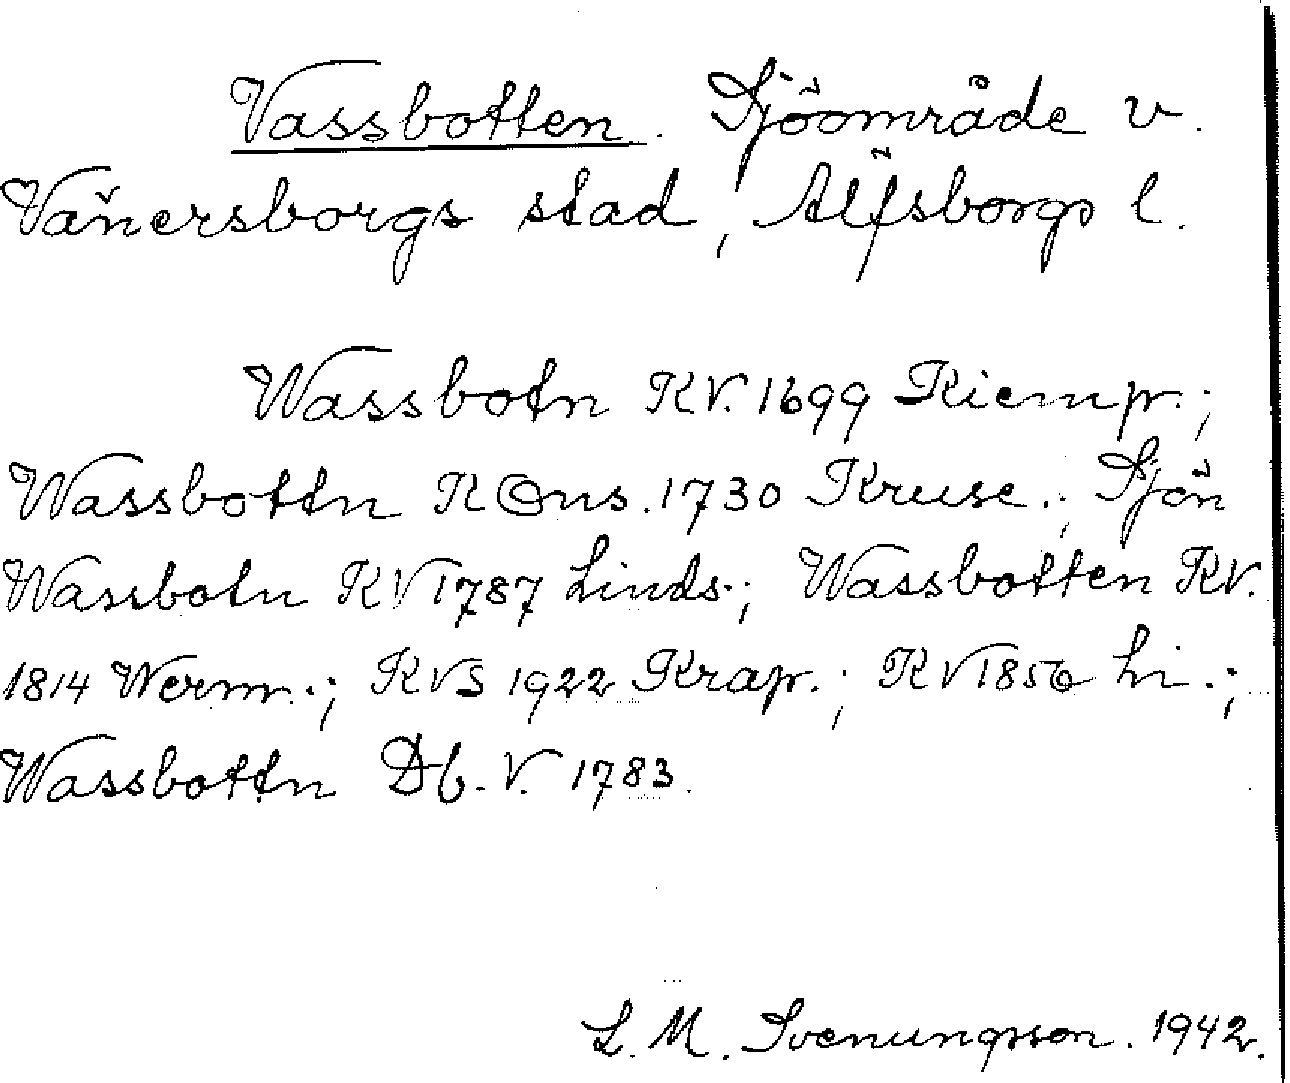 Vassbotten. Sjöområde v.
Vänersborgs stad, Älfsborgs l.
Wassbotn KV. 1699 Kiemp.;
Wassbottn K Öns. 1730 Kruse.; Sjön
Wassbotn KV 1787 Linds.; Wassbotten KV.
1814 Werm.; KVS 1922 Krap.; KV 1856 Li.;
Wassbottn Db. V. 1783.
L. M. Svenungsson. 1942.